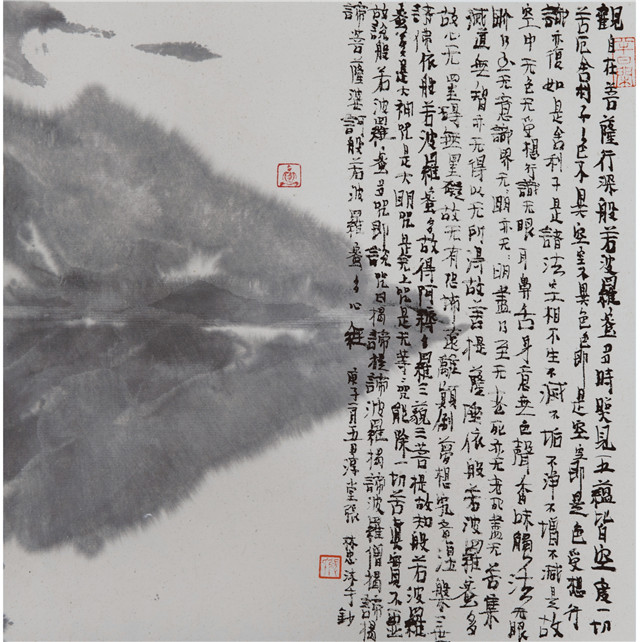 觀自在菩薩行深般若波羅蜜多時照見五蘊皆空度一切
苦厄舍利子色不異空空不異色色即是空空即是色受想行
識亦復如是舍利子是諸法空相不生不滅不垢不淨不增不減是故
空中无色无受想行識无眼耳鼻舌身意無色聲香味觸法无眼
界乃至无意識界无明亦无无明盡乃至无老死亦无老死盡无苦集
滅道無智亦无得以无所得故菩提薩埵依般若波羅蜜多
故心无罣礙無罣礙故无有恐怖遠離顛倒夢想究竟涅槃三世
諸佛依般若波羅蜜多故得阿耨多羅三藐三菩提故知般若波羅
蜜多是大神咒是大明咒是无上咒是无等〻咒能除一切苦真實不虛
故說般若波羅蜜多咒即說咒曰揭諦揭諦波羅揭諦波羅僧揭諦揭
諦菩薩婆訶般若波羅蜜多心經 庚子二月五日淳堂張林忠沐手鈔